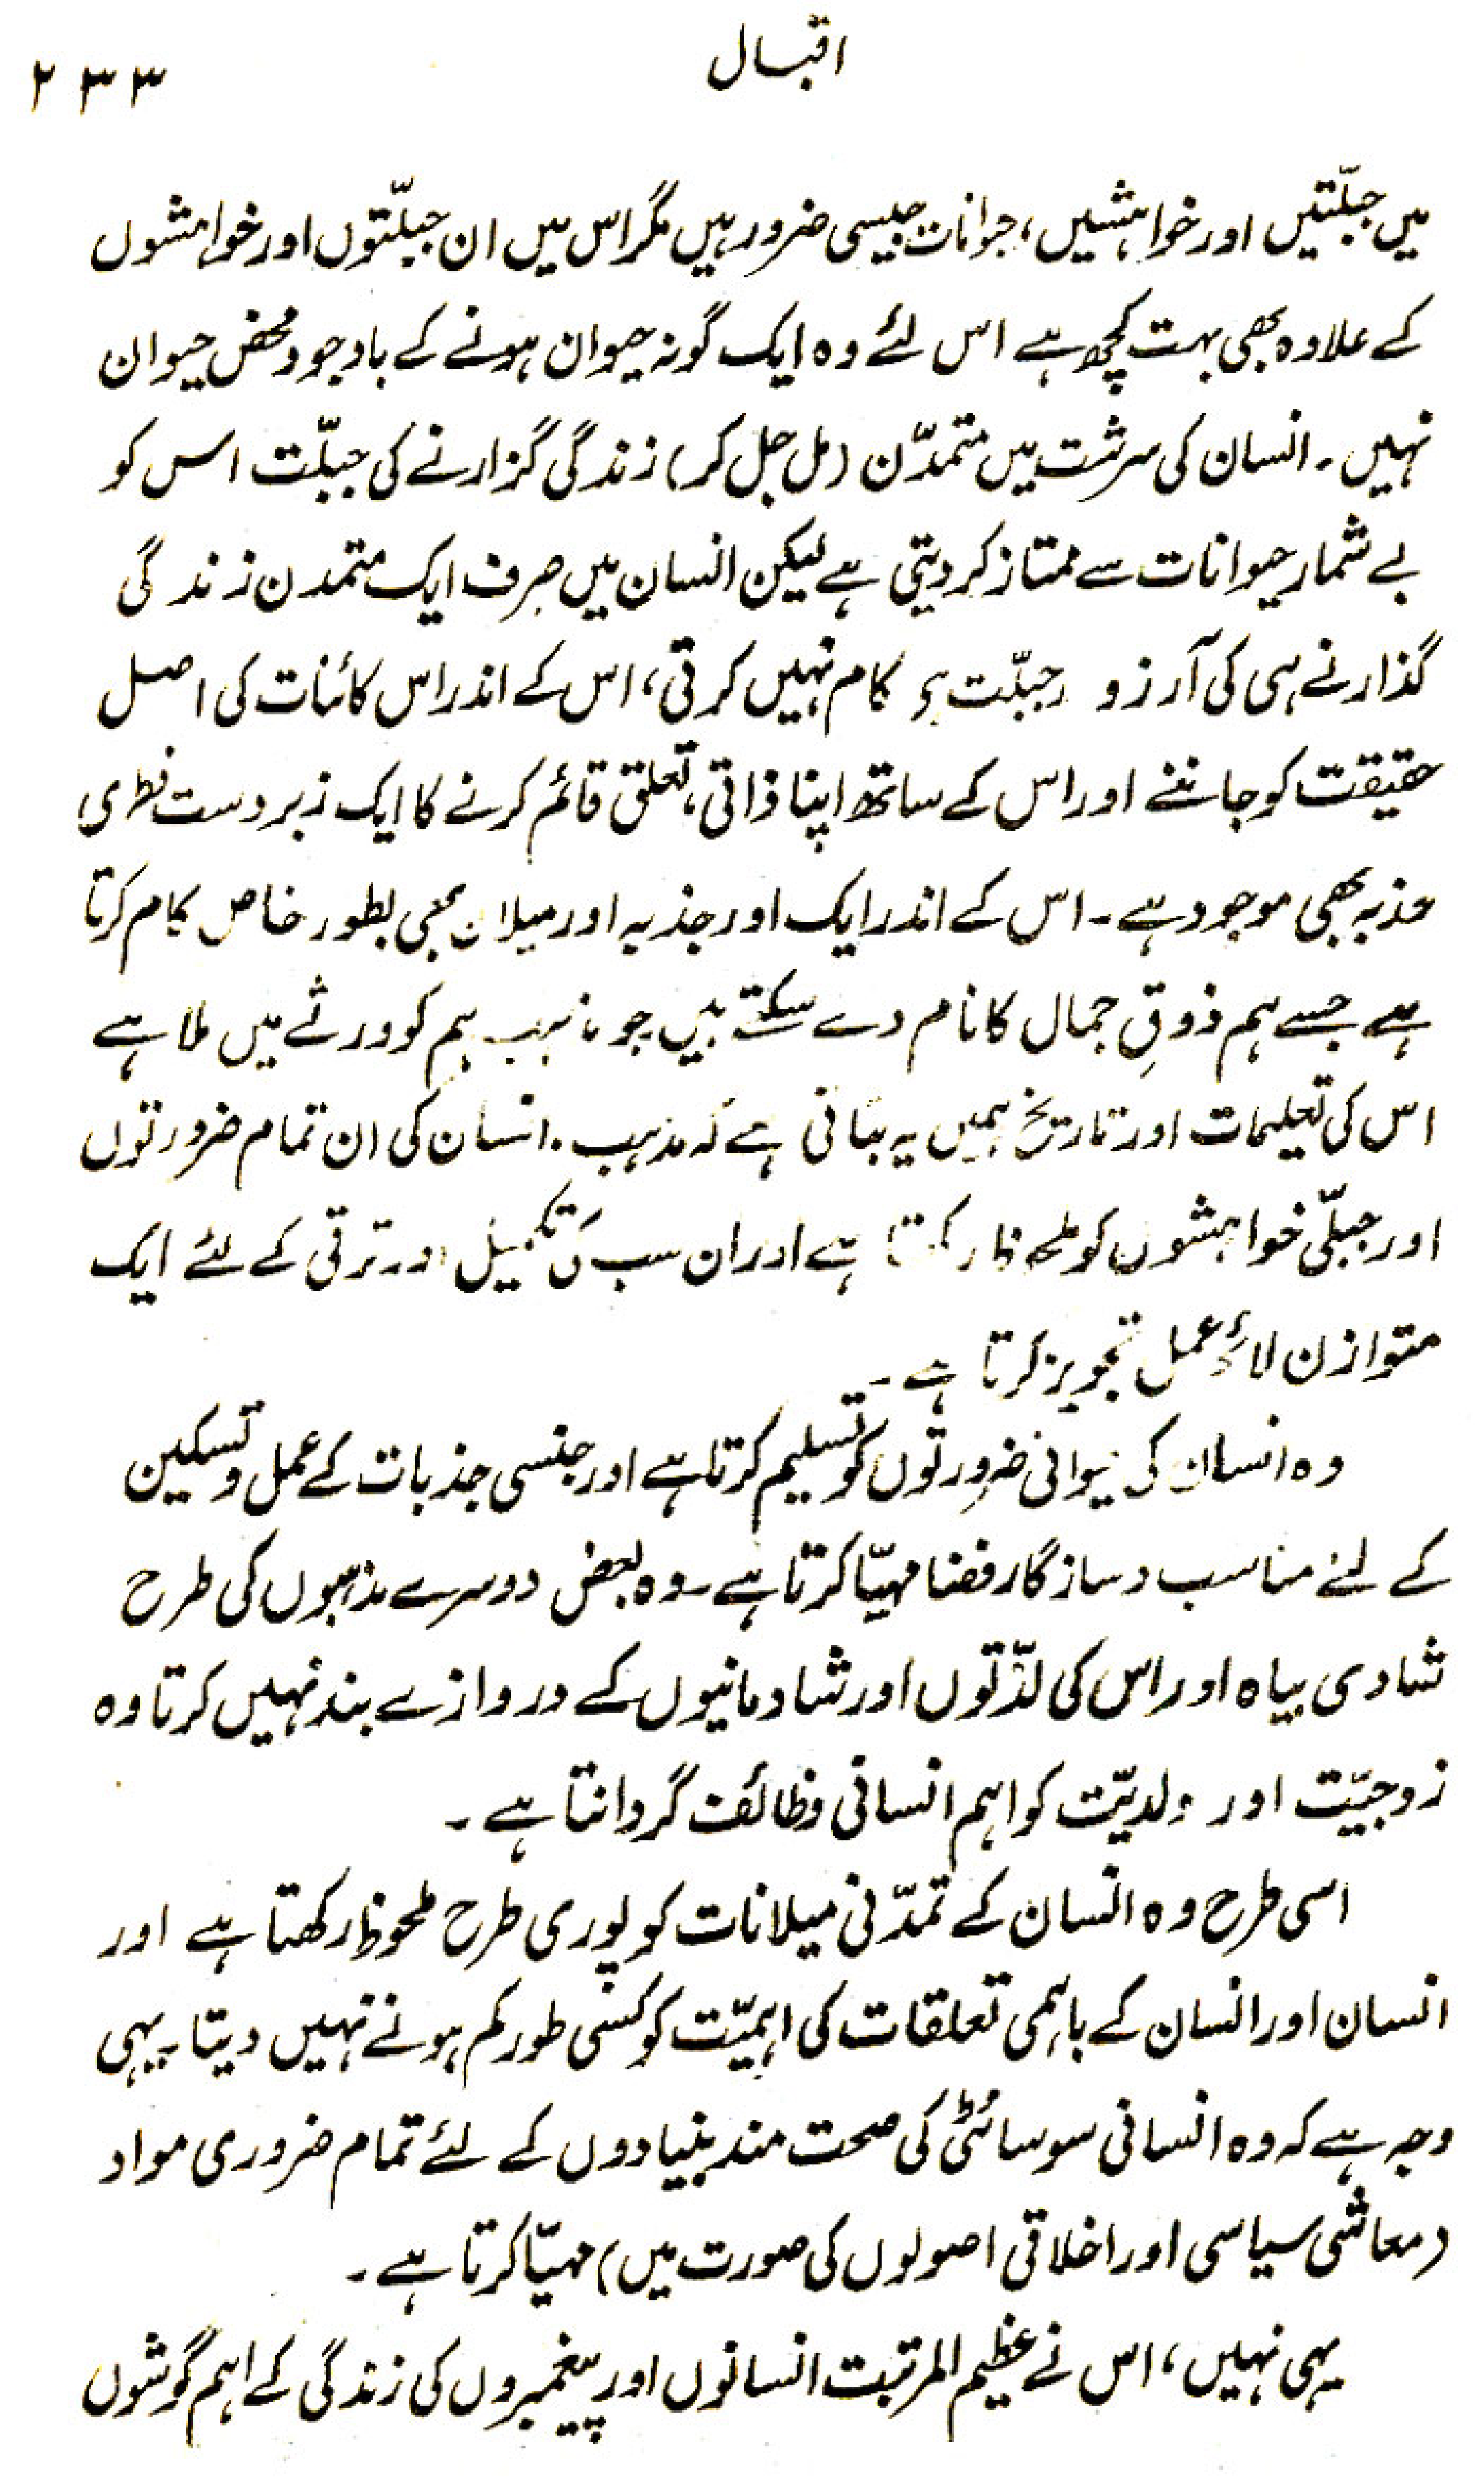 اقبال
۲۳۳
میں جبلّتیں اور خواہشیں، حیوانات جیسی ضرور ہیں مگر اس میں ان جبلّتوں اور خواہشوں
کے علاوہ بھی بہت کچھ ہے اس لئے وہ ایک گونہ حیوان ہونے کے باوجود محض حیوان
نہیں۔ انسان کی سرشت میں متمدّن (مل جل کر) زندگی گزارنے کی جبلّت اس کو
بے شمار حیوانات سے ممتاز کر دیتی ہے لیکن انسان میں صرف ایک متمدن زندگی
گذارنے ہی کی آرزو (جبلّت) کام نہیں کرتی، اس کے اندر اس کائنات کی اصل
حقیقت کو جاننے اور اس کے ساتھ اپنا ذاتی تعلق قائم کرنے کا ایک زبردست فطری
جذبہ بھی موجود ہے۔ اس کے اندر ایک اور جذبہ اور میلان بھی بطور خاص کام کرتا
ہے جسے ہم ذوقِ جمال کا نام دے سکتے ہیں جو مذہب ہم کو ورثے میں ملا ہے
اس کی تعلیمات اور تاریخ ہمیں یہ بتاتی ہے کہ مذہب۔ انسان کی ان تمام ضرورتوں
اور جبلّی خواہشوں کو ملحوظ رکھتا ہے اور ان سب کی تکمیل اور ترقی کے لئے ایک
متوازن لائحۂ عمل تجویز کرتا ہے۔
وہ انسان کی حیوانی ضرورتوں کو تسلیم کرتا ہے اور جنسی جذبات کے عمل و تسکین
کے لئے مناسب و سازگار فضا مہیّا کرتا ہے۔ وہ بعض دوسرے مذہبوں کی طرح
شادی بیاہ اور اس کی لذّتوں اور شادمانیوں کے دروازے بند نہیں کرتا وہ
زوجیّت اور ولدیّت کو اہم انسانی وظائف گردانتا ہے۔
اسی طرح وہ انسان کے تمدّنی میلانات کو پوری طرح ملحوظ رکھتا ہے اور
انسان اور انسان کے باہمی تعلقات کی اہمیّت کو کسی طور کم ہونے نہیں دیتا۔ یہی
وجہ ہے کہ وہ انسانی سوسائٹی کی صحت مند بنیادوں کے لئے تمام ضروری مواد
(معاشی سیاسی اور اخلاقی اصولوں کی صورت میں) مہیّا کرتا ہے۔
یہی نہیں، اس نے عظیم المرتبت انسانوں اور پیغمبروں کی زندگی کے اہم گوشوں